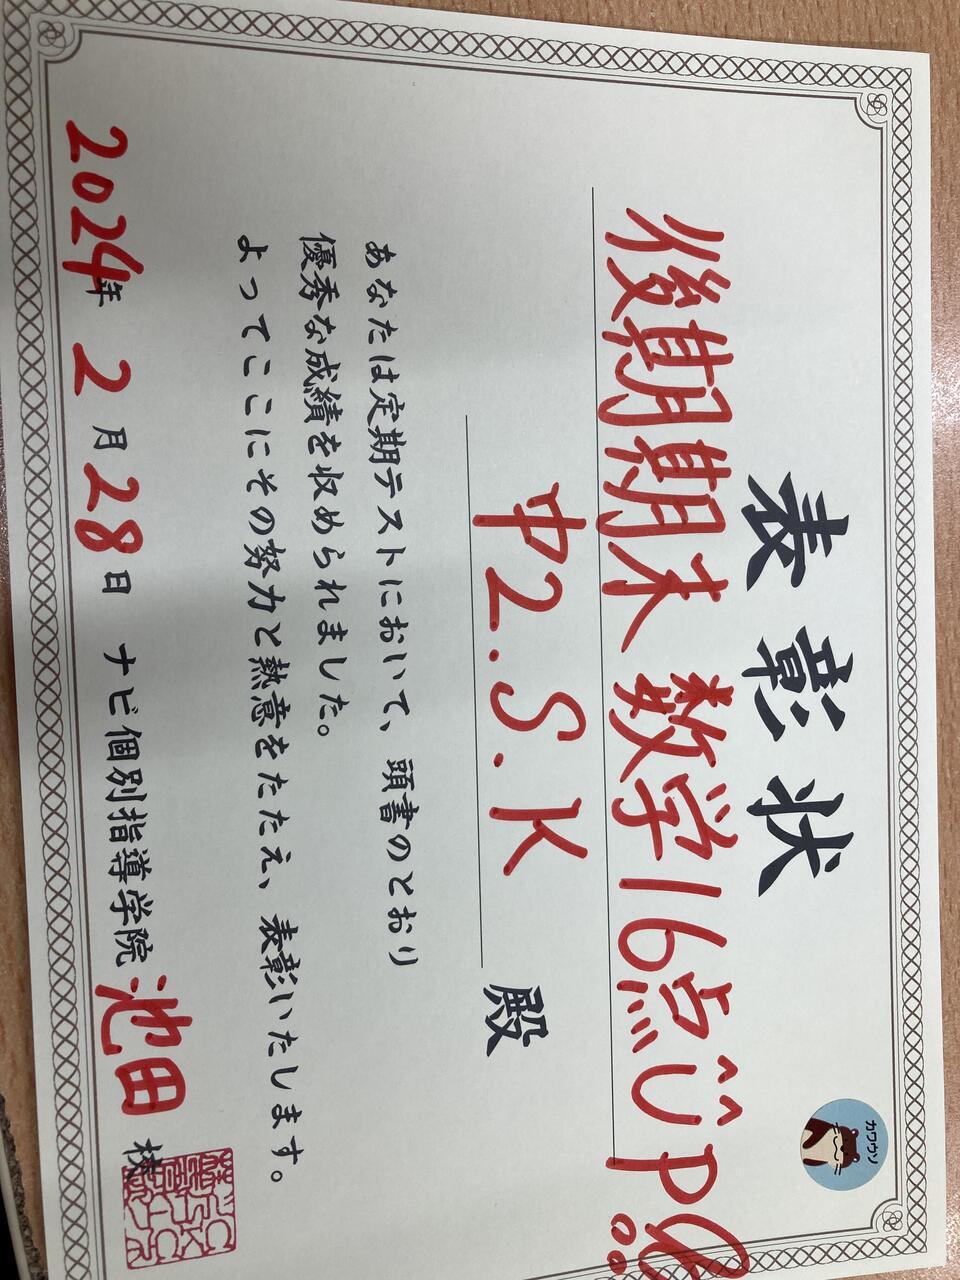 表彰状
カワウソ
後期期末 数学16点UP!!
中2.S.K 殿
あなたは定期テストにおいて、頭書のとおり
優秀な成績を収められました。
よってここにその努力と熱意をたたえ、表彰いたします。
2024年 2月28日 ナビ個別指導学院 池田 校